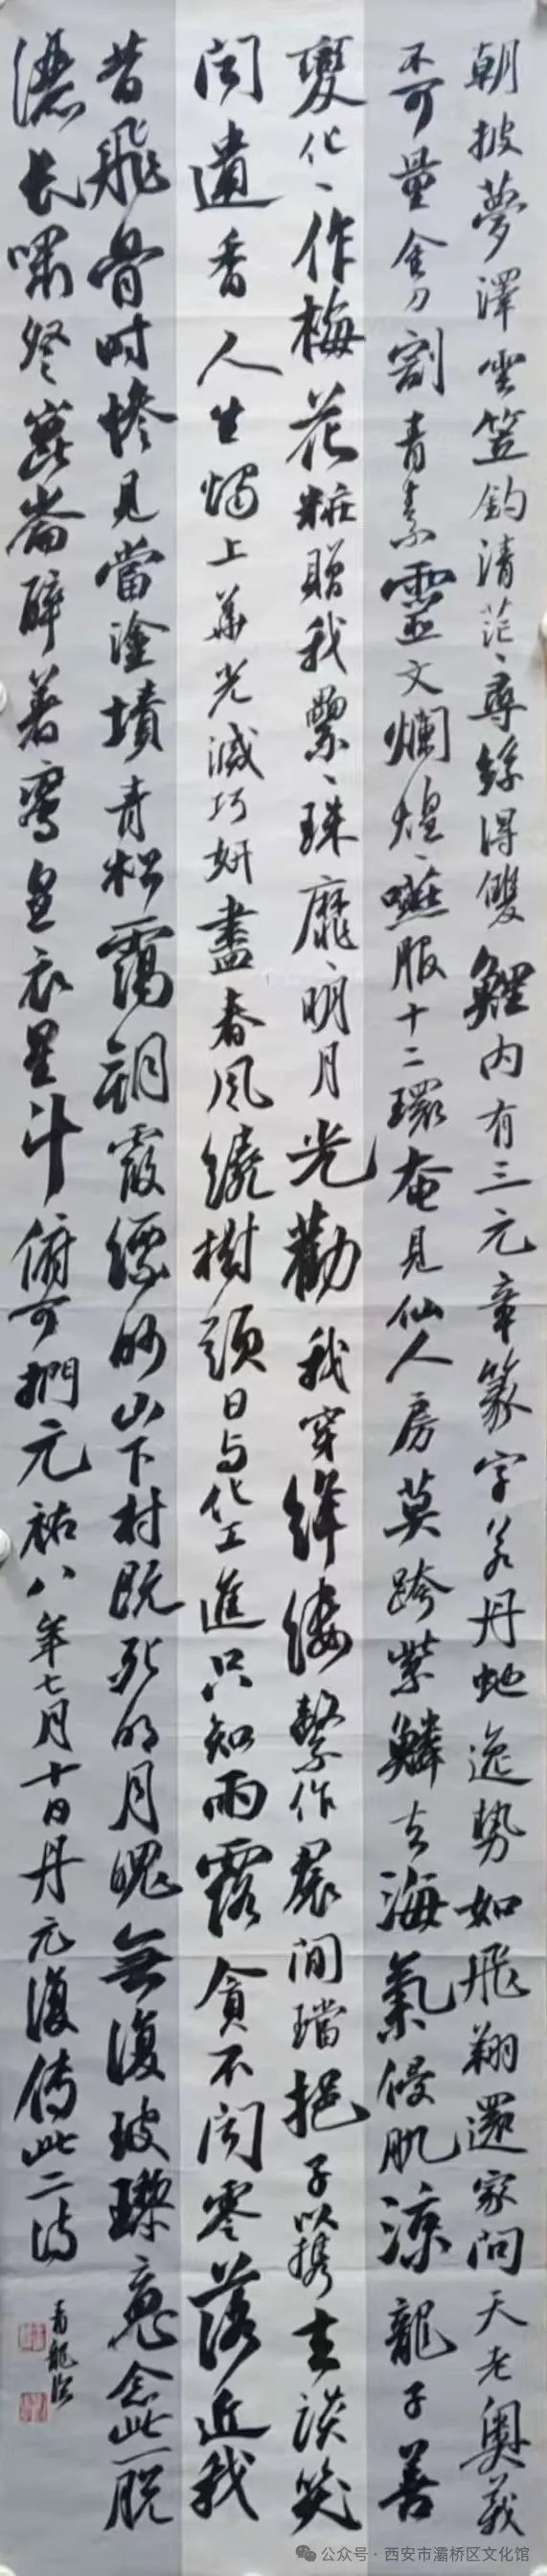 朝披夢澤雲笠釣清茫〻尋絲得雙鯉內有三元章篆字若丹虵逸勢如飛翔還家問天老奧義
不可量金刀割青素靈文爛煌〻嚥服十二環奄見仙人房莫跨紫鱗去海氣侵肌涼龍子善
變化〻作梅花粧贈我纍〻珠靡〻明月光勸我穿絳縷繫作裙間璫挹子以攜去談笑
聞遺香人生燭上華光滅巧妍盡春風繞樹頭日與化工進只知雨露貪不聞零落近我
昔飛骨時慘見當塗墳青松靄朝霞縹眇山下村既死明月魄無復玻瓈魂念此一脫
灑長嘯登崑崙醉著鸞皇衣星斗俯可捫元祐八年七月十日丹元復傳此二詩
青龍
公众号·西安市灞桥区文化馆